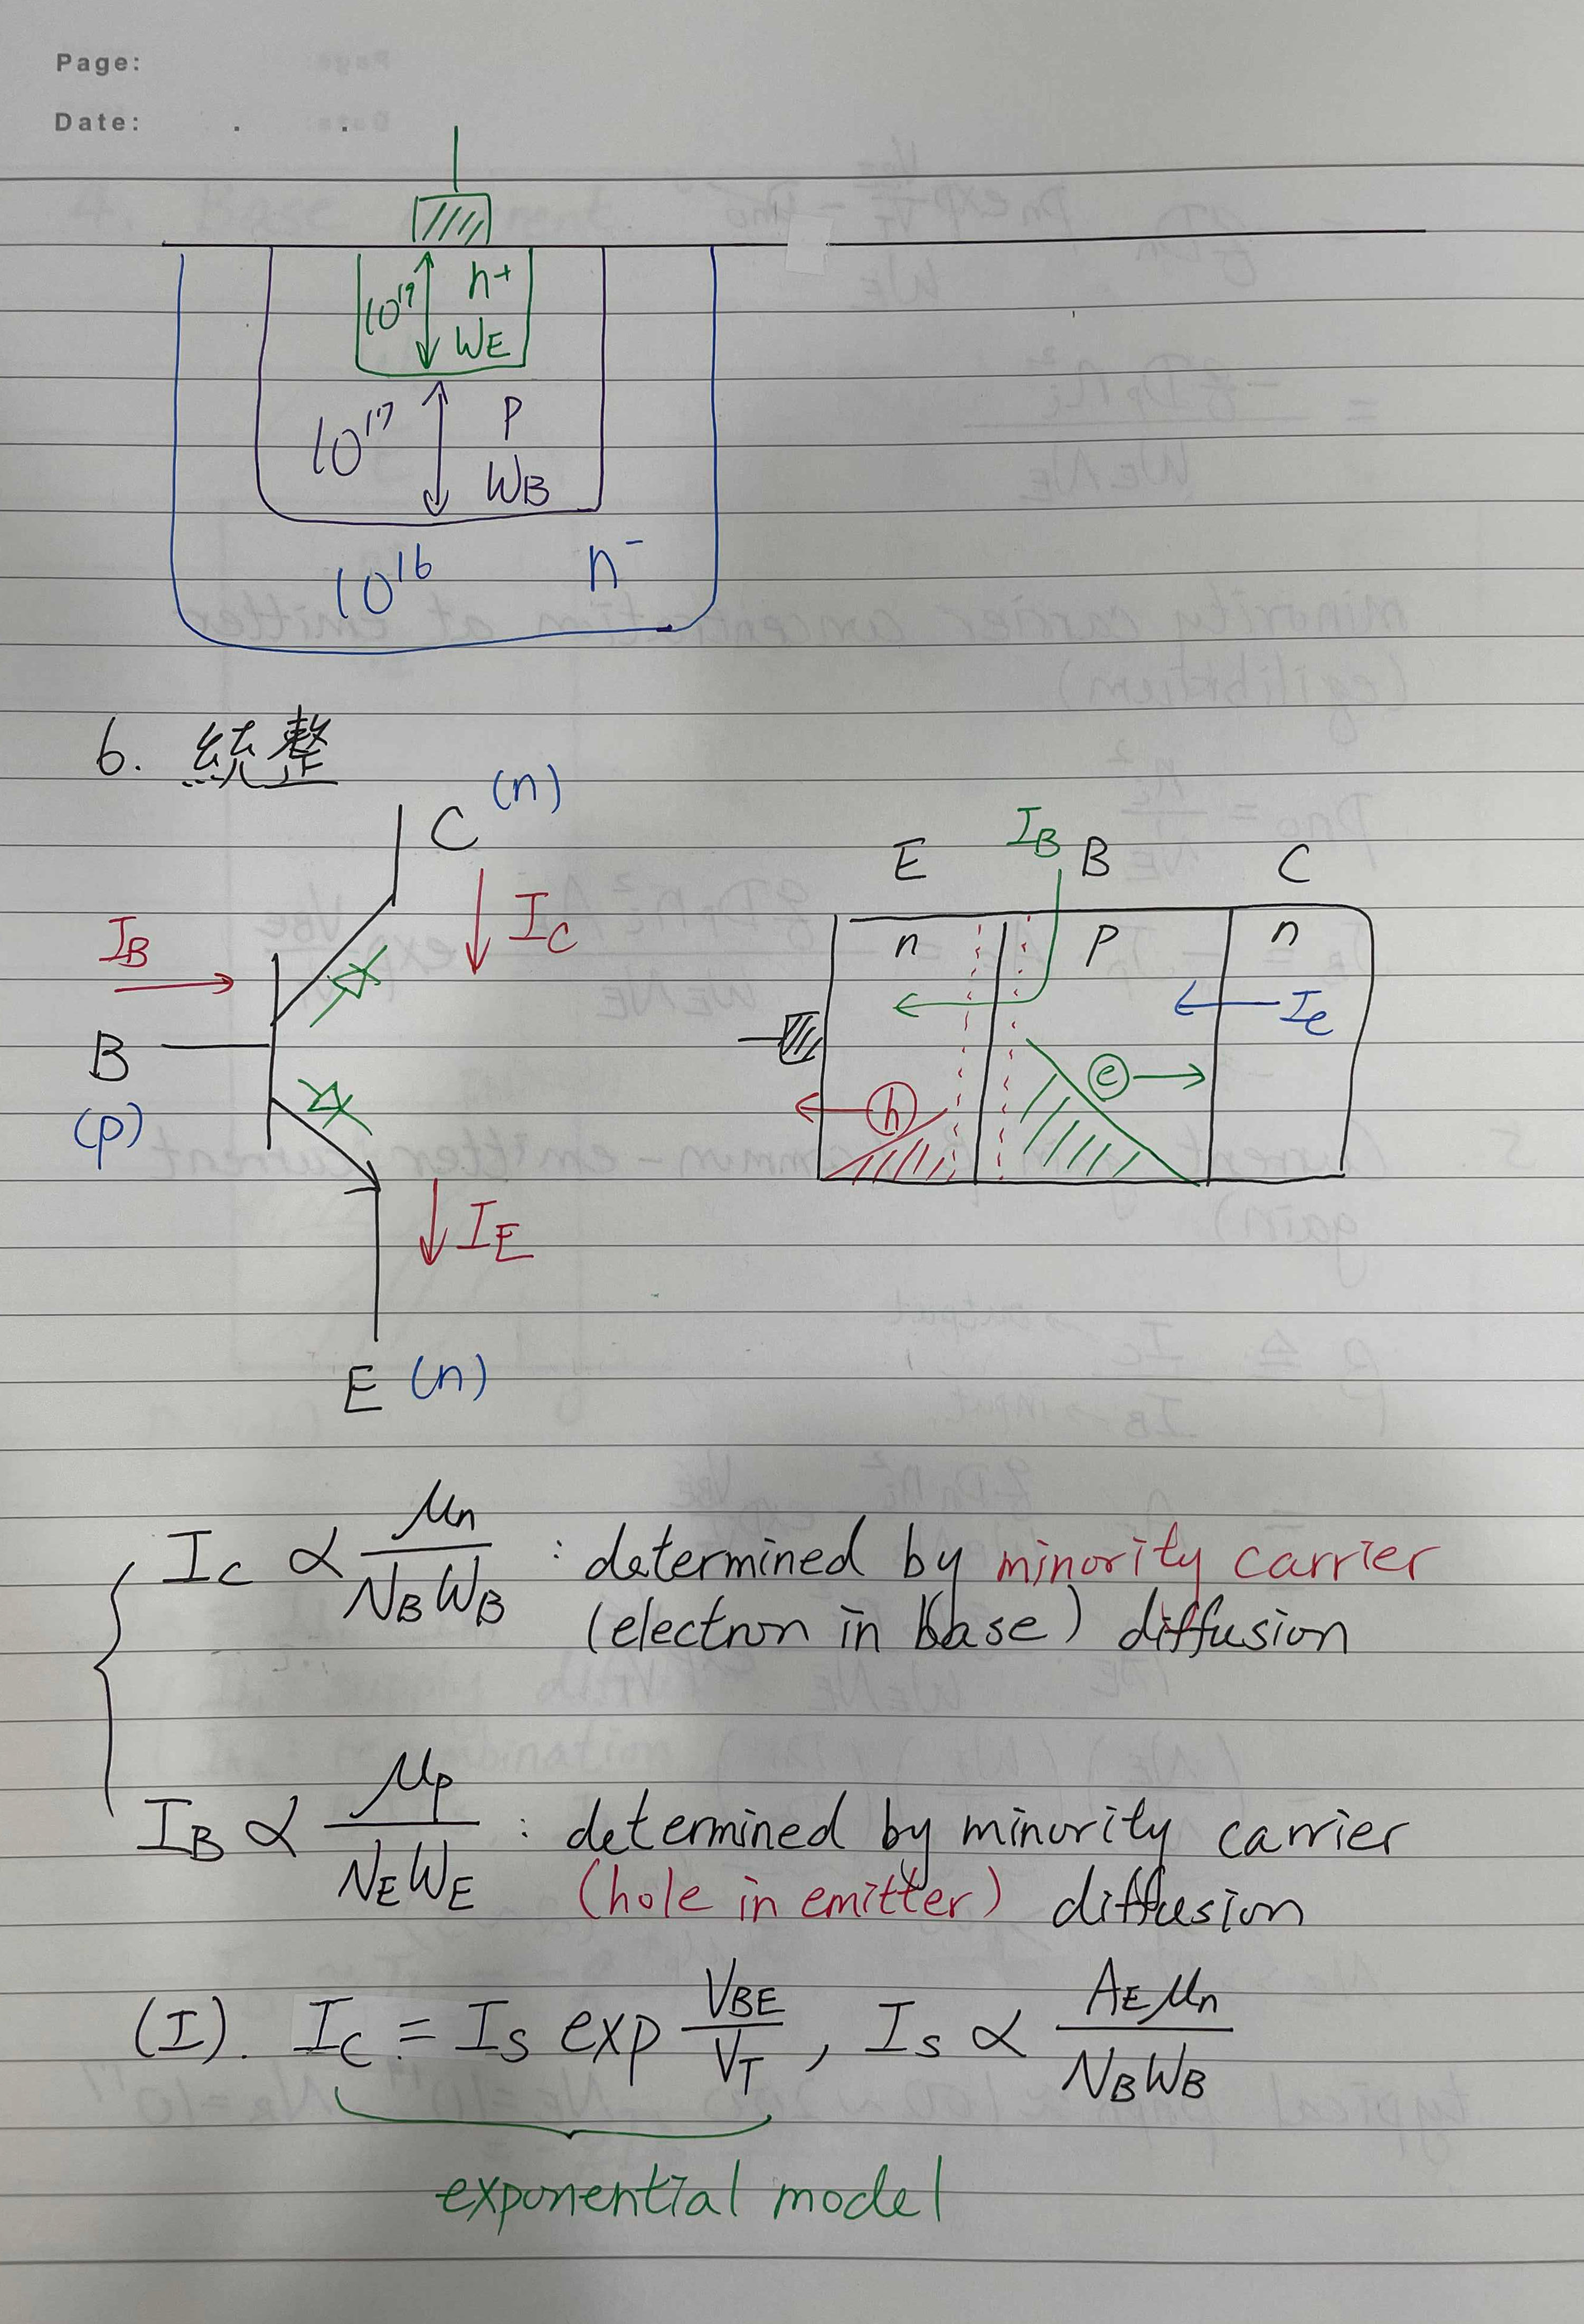 Page:
Date: . .
10¹⁹ n+
WE
10¹⁷ P
WB
10¹⁶ n⁻
6. 統整
C (n)
IB
IC
B
(p)
IE
E (n)
E IB B C
n P n
Ie
h e
IC ∝ μn / NB WB : determined by minority carrier
(electron in base) diffusion
IB ∝ μp / NE WE : determined by minority carrier
(hole in emitter) diffusion
(I). IC = IS exp VBE / VT , IS ∝ AE μn / NB WB
exponential model